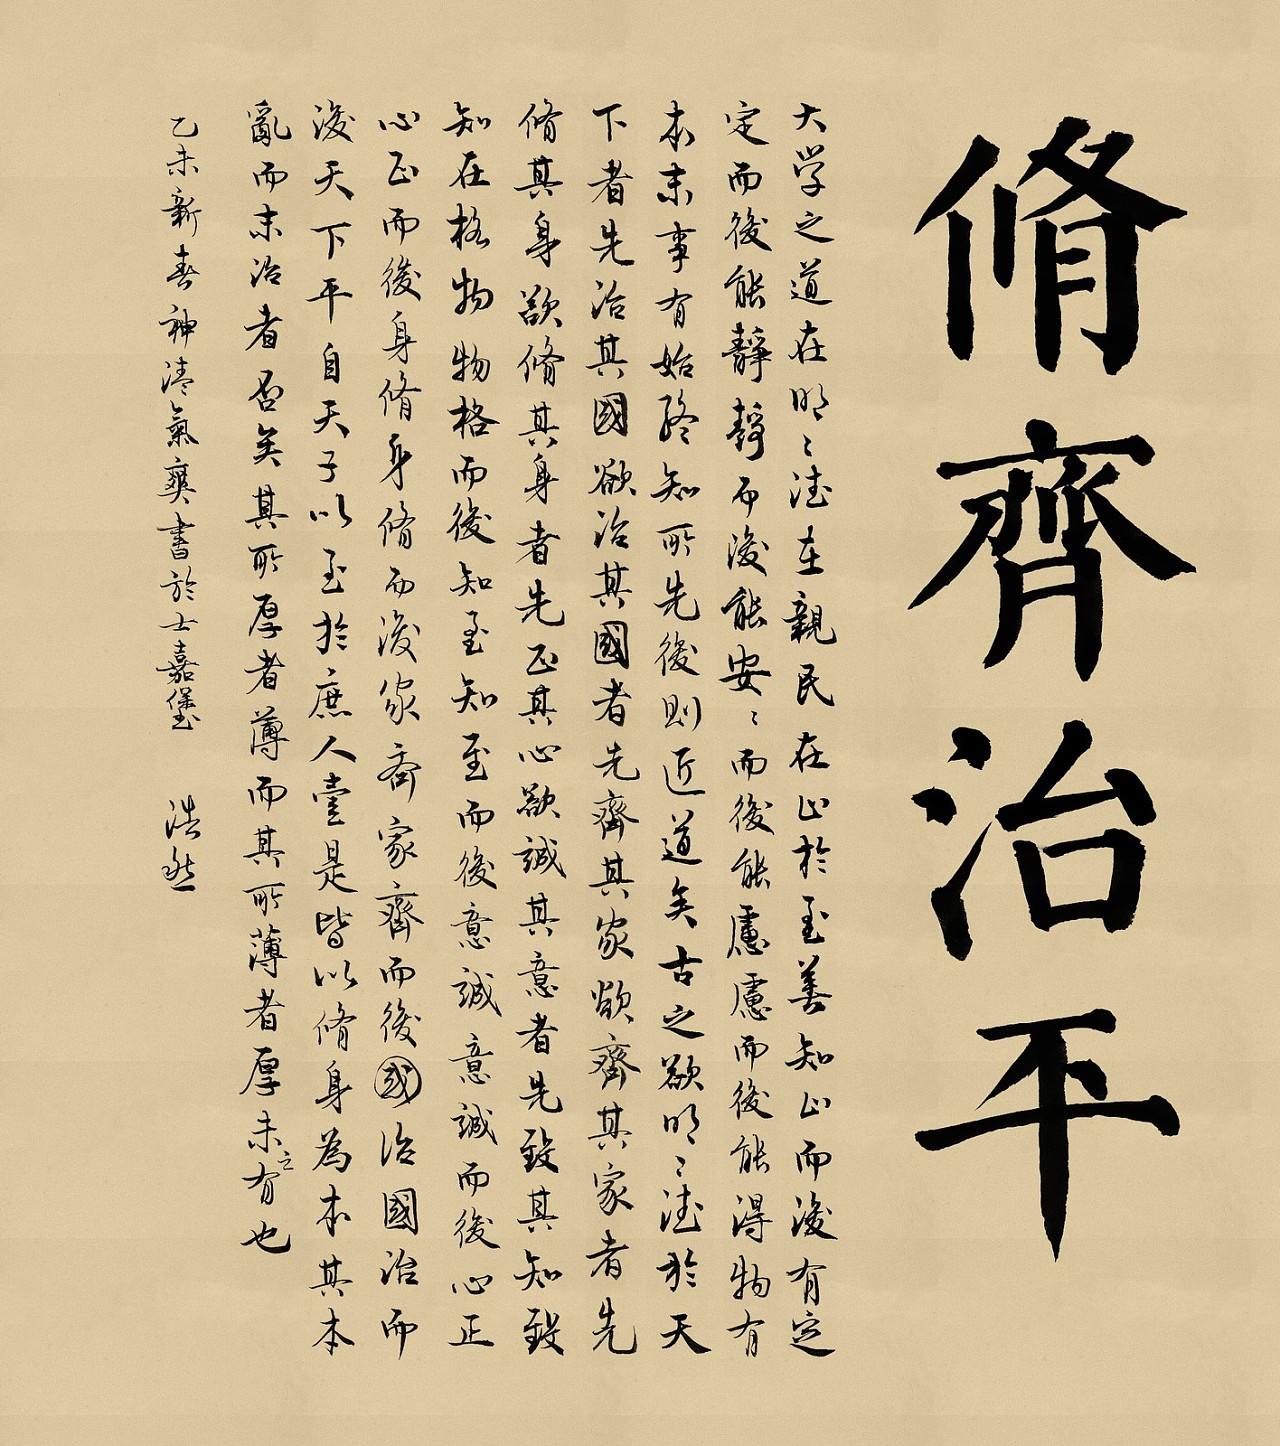 脩齊治平
大学之道在明〻德在親民在止於至善知止而後有定
定而後能靜靜而後能安〻而後能慮慮而後能得物有
本末事有始終知所先後則近道矣古之欲明〻德於天
下者先治其國欲治其國者先齊其家欲齊其家者先
脩其身欲脩其身者先正其心欲誠其意者先致其知致
知在格物物格而後知至知至而後意誠意誠而後心正
心正而後身脩身脩而後家齊家齊而後國治國治而
後天下平自天子以至於庶人壹是皆以脩身為本其本
亂而末治者否矣其所厚者薄而其所薄者厚未之有也
乙未新春神清氣爽書於士嘉堡 浩然